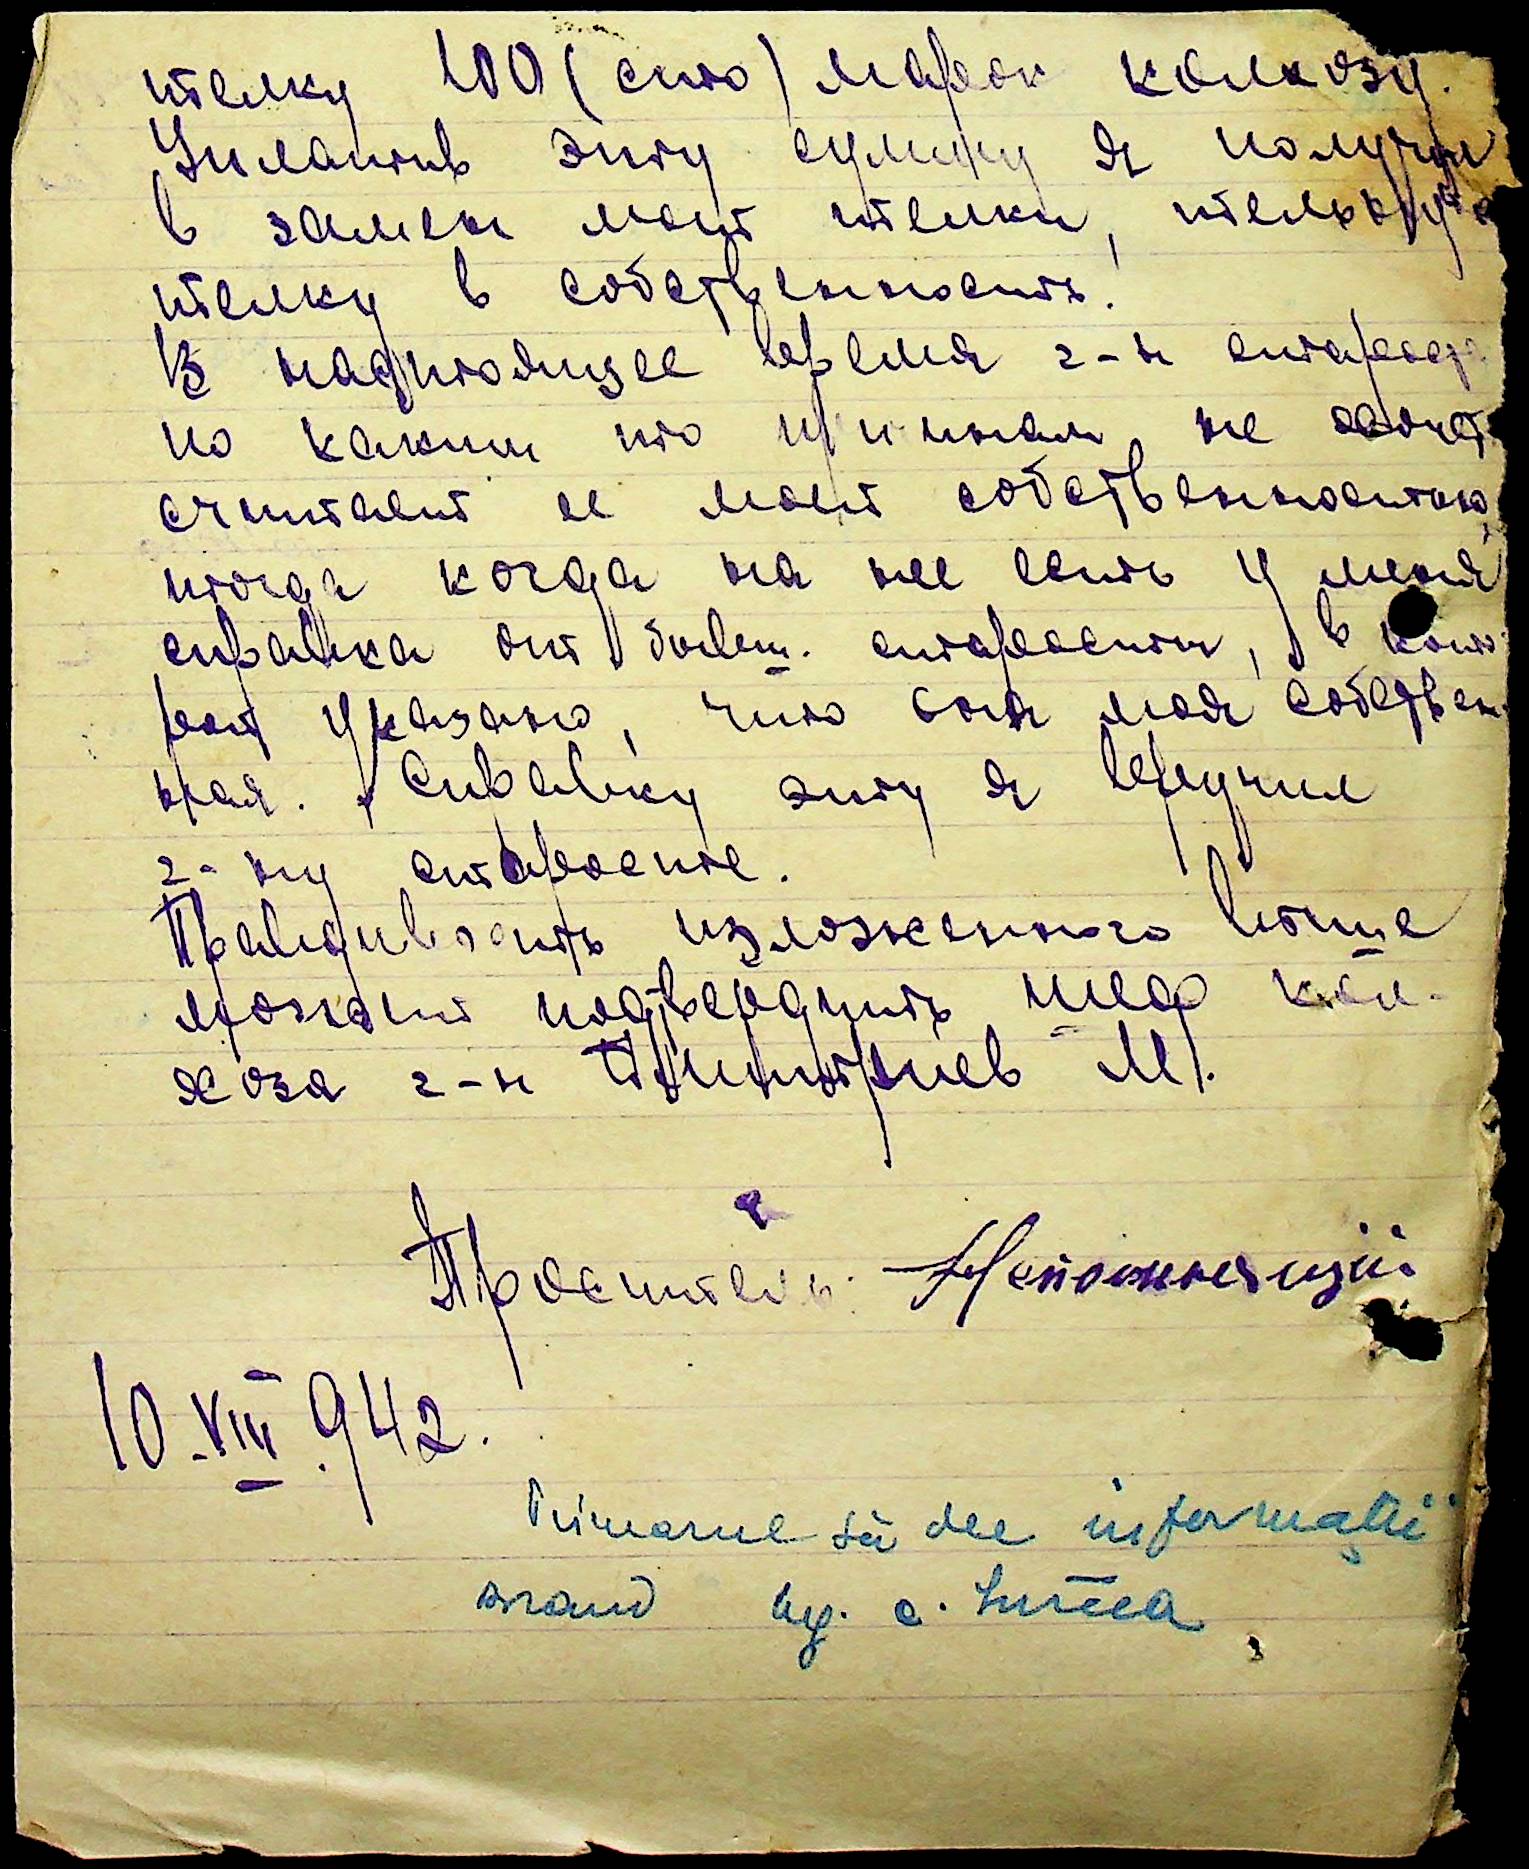 телку 100 (сто) марок колхозу.
Уплатив эту сумму я получил
в замен моей телки, тельную
телку в собственность.
В настоящее время г-н староста
по каким то причинам не хочет
считает ее моей собственностью,
тогда когда на нее есть у меня
справка от бывш. старосты, в кото
рой указано, что она моя собствен-
ная. Справку эту я вручил
г-ну старосте.
Правдивость изложенного выше
может подтвердить шеф кол-
хоза г-н Димитриев М.
Проситель:
10.VIII.942.
să dee informații